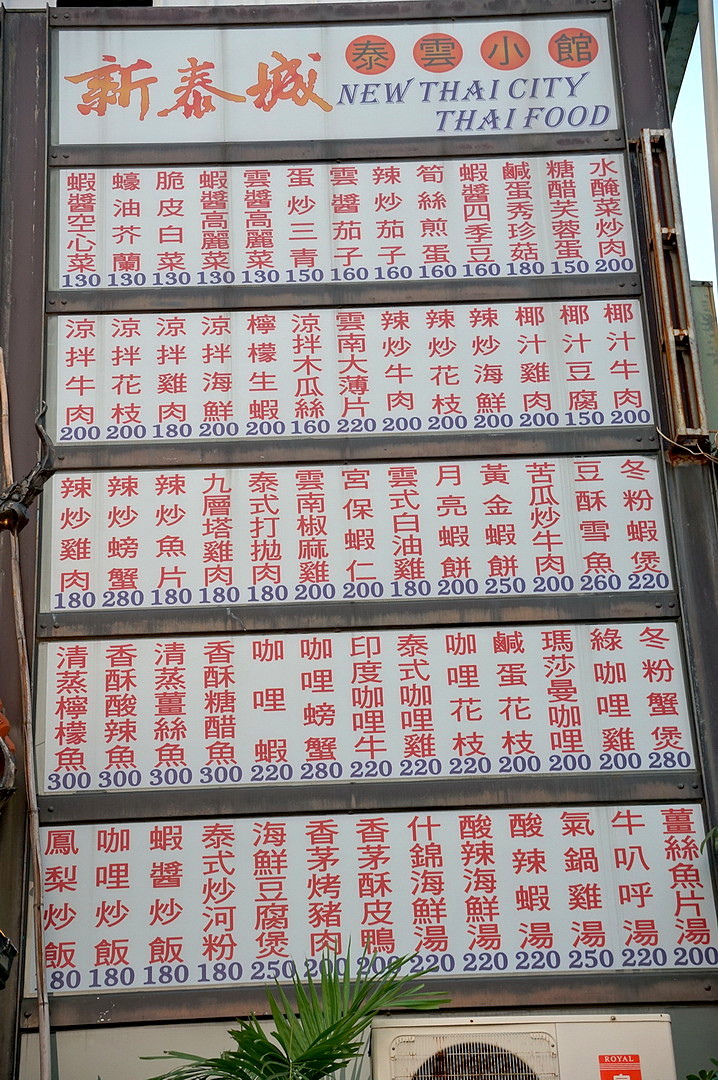 新泰城 泰雲小館
NEW THAI CITY
THAI FOOD
蝦醬空心菜 130
蠔油芥蘭 130
脆皮白菜 130
蝦醬高麗菜 130
雲醬高麗菜 130
蛋炒三青 150
雲醬茄子 160
辣炒茄子 160
筍絲煎蛋 160
蝦醬四季豆 160
鹹蛋秀珍菇 180
糖醋芙蓉蛋 150
水醃菜炒肉 200
涼拌牛肉 200
涼拌花枝 200
涼拌雞肉 180
涼拌海鮮 200
檸檬生蝦 200
涼拌木瓜絲 160
雲南大薄片 220
辣炒牛肉 200
辣炒花枝 200
辣炒海鮮 200
椰汁雞肉 200
椰汁豆腐 150
椰汁牛肉 200
辣炒雞肉 180
辣炒螃蟹 280
辣炒魚片 180
九層塔雞肉 180
泰式打拋肉 180
雲南椒麻雞 200
宮保蝦仁 200
雲式白油雞 180
月亮蝦餅 200
黃金蝦餅 250
苦瓜炒牛肉 200
豆酥雪魚 260
冬粉蝦煲 220
清蒸檸檬魚 300
香酥酸辣魚 300
清蒸薑絲魚 300
香酥糖醋魚 300
咖哩蝦 220
咖哩螃蟹 280
印度咖哩牛 220
泰式咖哩雞 220
咖哩花枝 220
鹹蛋花枝 200
瑪莎曼咖哩 200
綠咖哩雞 200
冬粉蟹煲 280
鳳梨炒飯 80
咖哩炒飯 180
蝦醬炒飯 180
泰式炒河粉 180
海鮮豆腐煲 250
香茅烤豬肉 200
香茅酥皮鴨 200
什錦海鮮湯 220
酸辣海鮮湯 220
酸辣蝦湯 220
氣鍋雞湯 250
牛叭呼湯 220
薑絲魚片湯 200
ROYAL